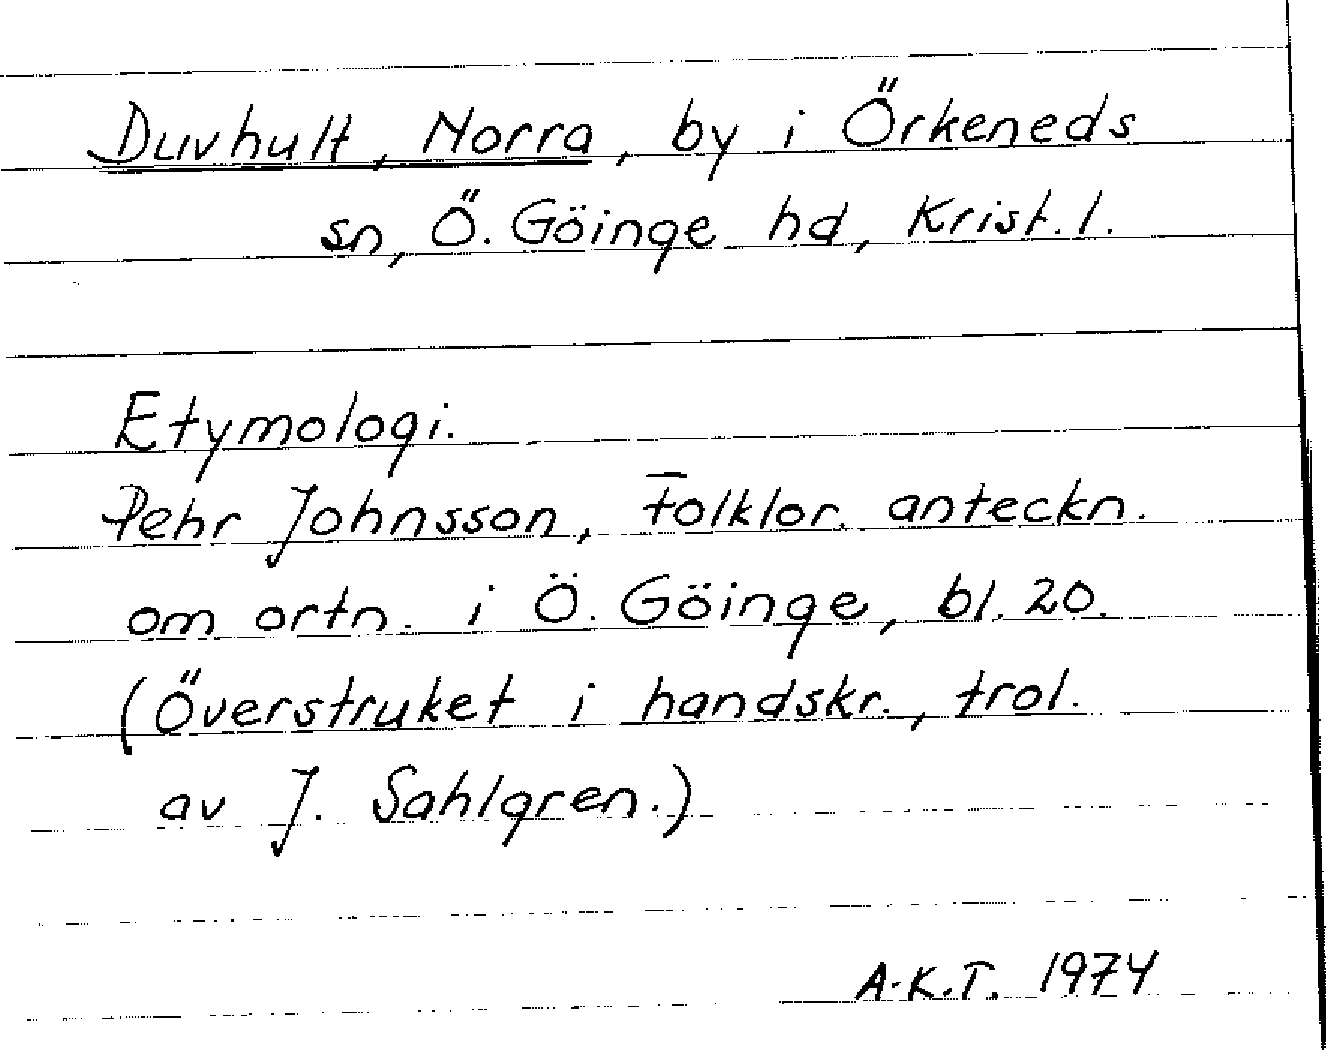 Duvhult, Norra, by i Örkeneds
sn, Ö. Göinge hd, Krist. l.
Etymologi.
Pehr Johnsson, Folklor. anteckn.
om ortn. i Ö. Göinge, bl. 20.
(Överstruket i handskr., trol.
av J. Sahlgren.)
A-K.T. 1974